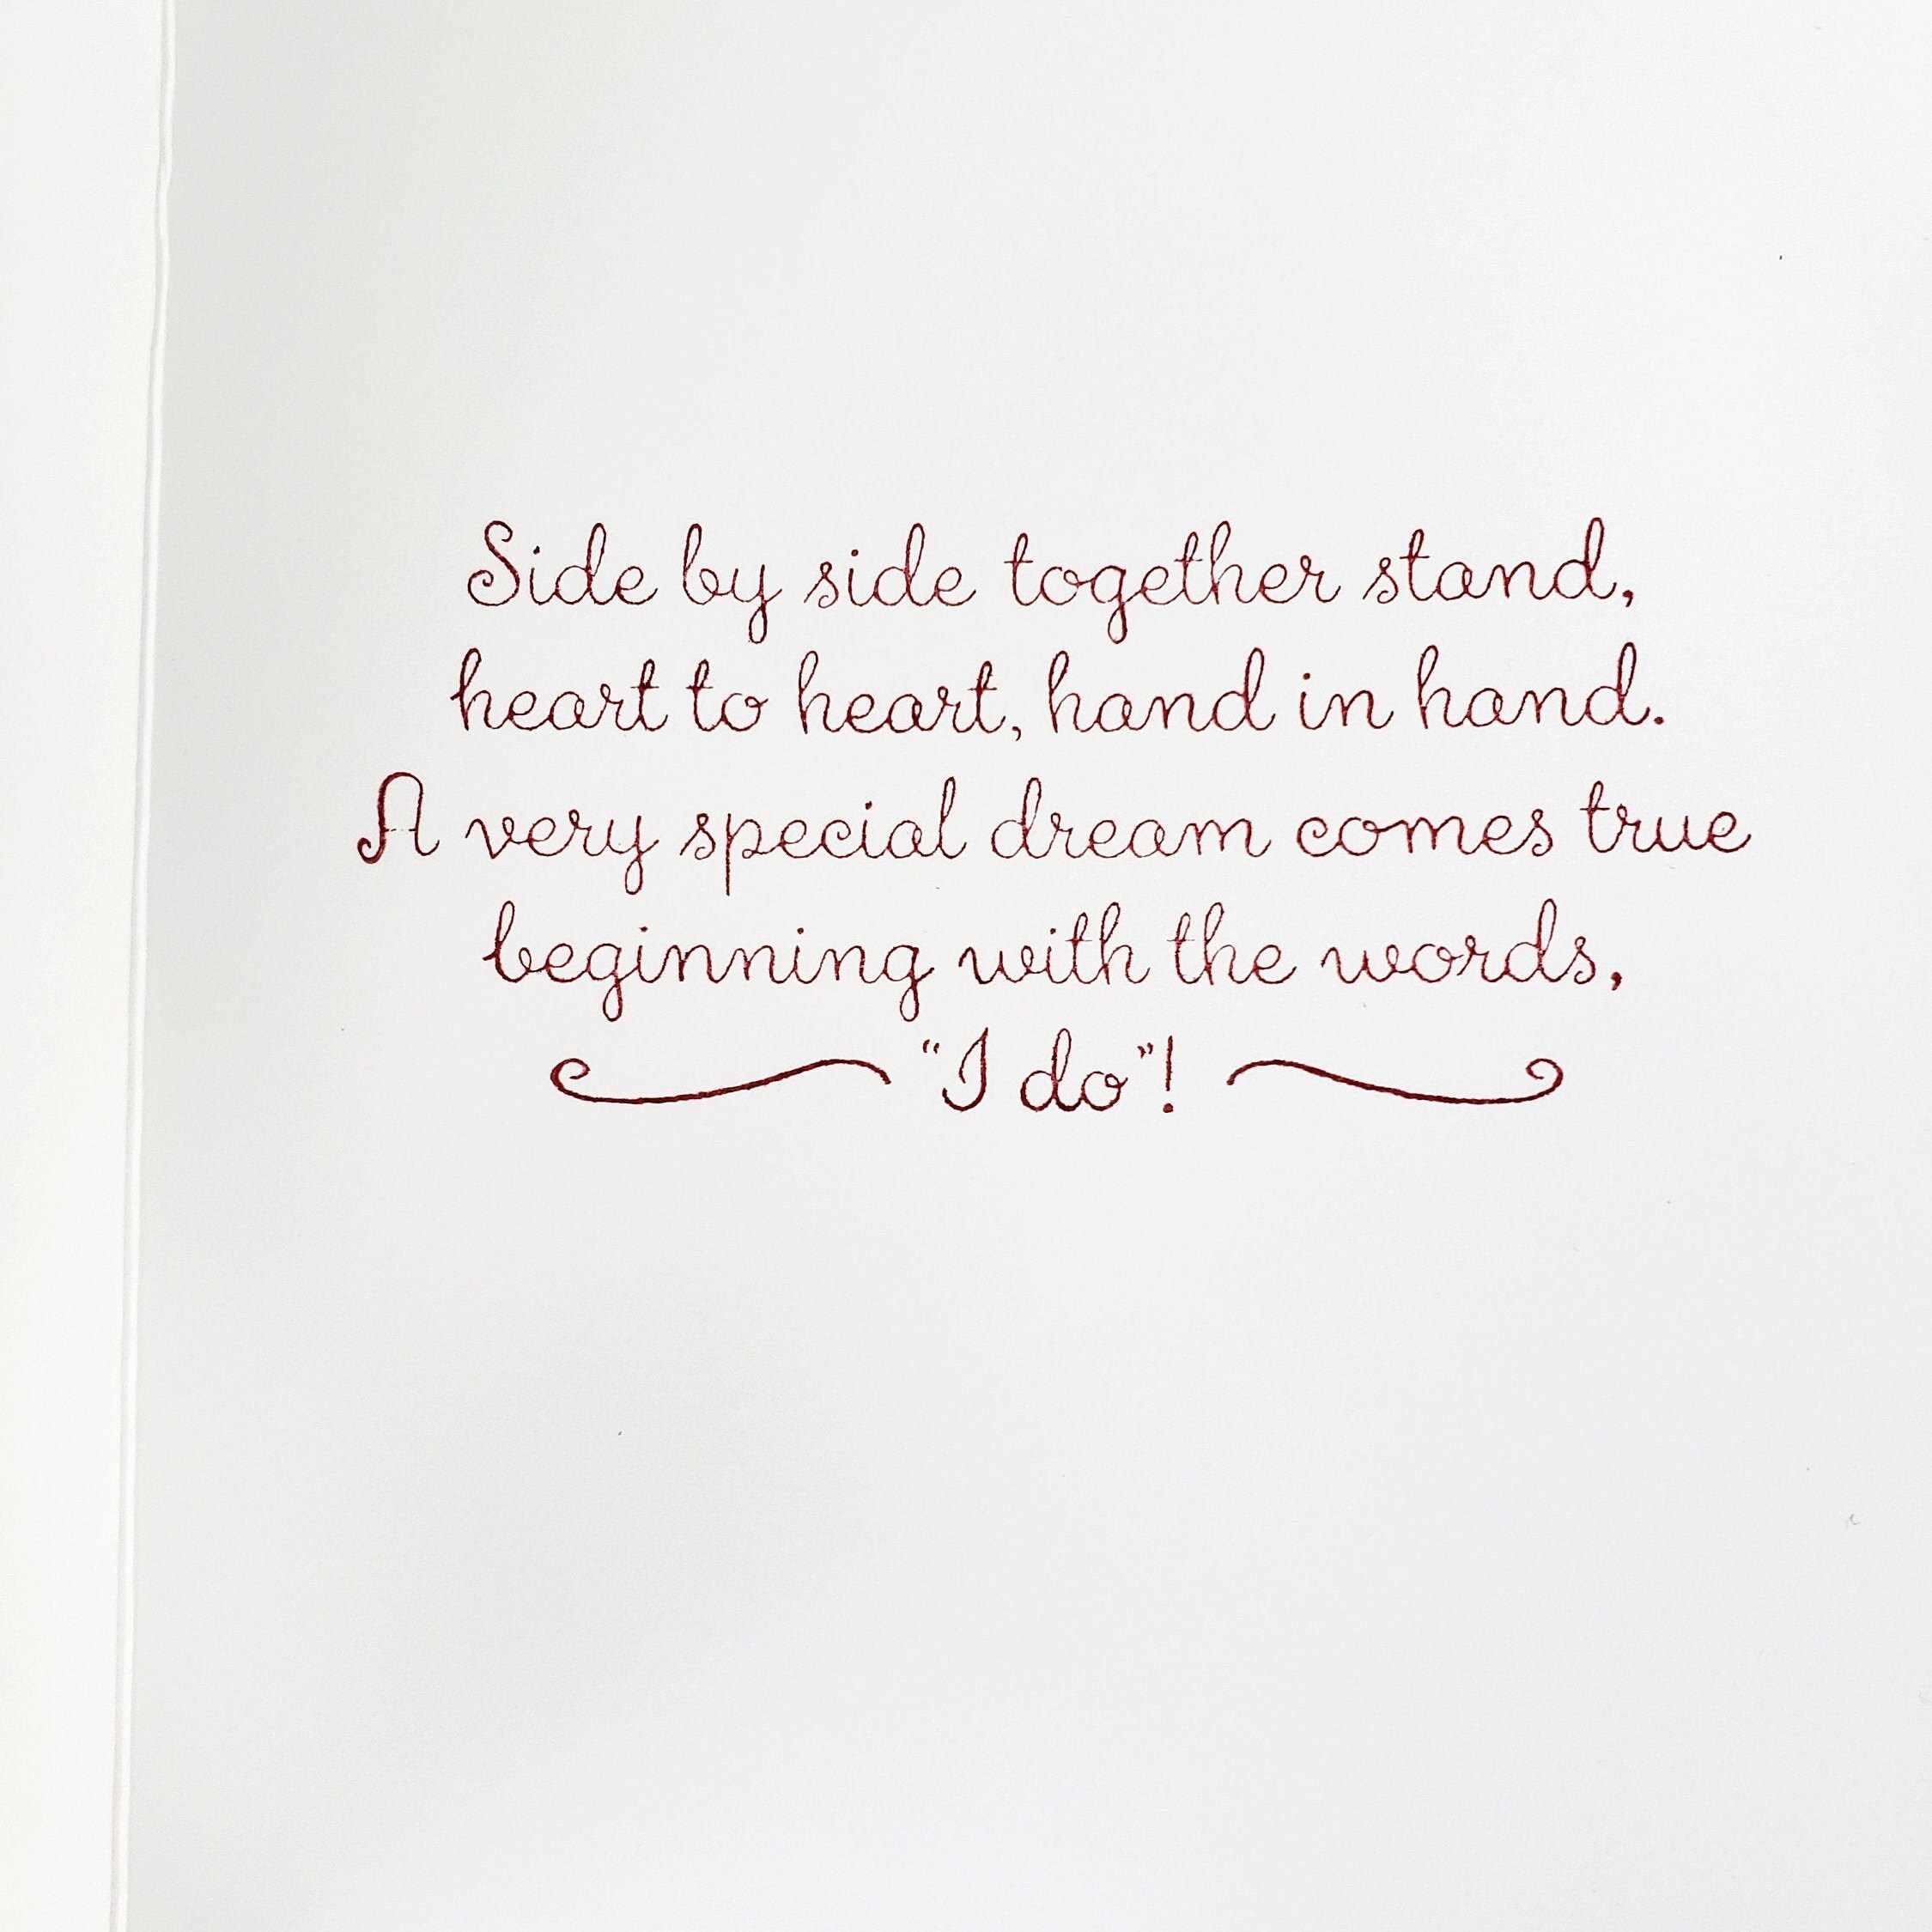 Side by side together stand,
heart to heart, hand in hand.
A very special dream comes true
beginning with the words,
“I do”!